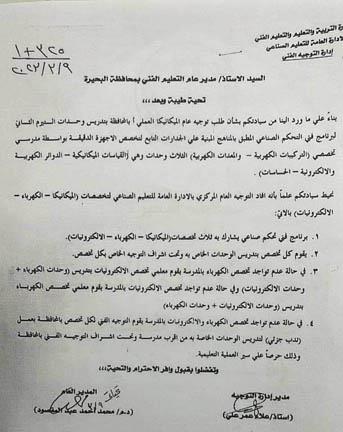 وزارة التربية والتعليم والتعليم الفني
الإدارة العامة للتعليم الصناعي
إدارة التوجيه الفني
١+٣٢٥
٢٠٢٢/٣/٩
السيد الاستاذ/ مدير عام التعليم الفني بمحافظة البحيرة
تحية طيبة وبعد ،،،
بناءً علي ما ورد الينا من سيادتكم بشأن طلب توجيه عام الميكانيكا العملي أ بالمحافظة بتدريس وحدات الستيرم الثاني
لبرنامج فني التحكم الصناعي المطبق بالمناهج المبنية علي الجدارات التابع لتخصص الاجهزة الدقيقة بواسطة مدرسي
تخصصي (التركيبات الكهربية – والمعدات الكهربية) الثلاث وحدات وهي (القياسات الميكانيكية – الدوائر الكهربية
والإلكترونية – الحساسات).
نحيط سيادتكم علماً بأنه افاد التوجيه العام المركزي بالادارة العامة للتعليم الصناعي لتخصصات (الميكانيكا – الكهرباء –
الالكترونيات) بالاتي:
١. برنامج فني تحكم صناعي يشارك به ثلاث تخصصات(الميكانيكا – الكهرباء – الالكترونيات).
٢. يقوم كل تخصص بتدريس الوحدات الخاص به وتحت اشراف التوجيه الخاص بكل تخصص.
٣. في حالة عدم تواجد تخصص الكهرباء بالمدرسة يقوم معلمي تخصص الالكترونيات بتدريس (وحدات الكهرباء +
وحدات الالكترونيات) وفي حالة عدم تواجد تخصص الالكترونيات بالمدرسة يقوم معلمي تخصص الكهرباء
بتدريس (وحدات الالكترونيات + وحدات الكهرباء)
٤. في حالة عدم تواجد تخصص الكهرباء والالكترونيات بالمدرسة يقوم التوجيه الفني لكل تخصص بالمحافظة بعمل
(ندب جزئي) لتدريس الوحدات الخاصة به من اقرب مدرسة وتحت اشراف التوجيه الفني بالمحافظة
وذلك حرصاً علي سير العملية التعليمية.
وتفضلوا بقبول وافر الاحترام والتحية،،،
مدير إدارة التوجيه
المدير العام
(استاذ/علاء عمر علي)
(د.م/ محمد أحمد عبد المقصود)